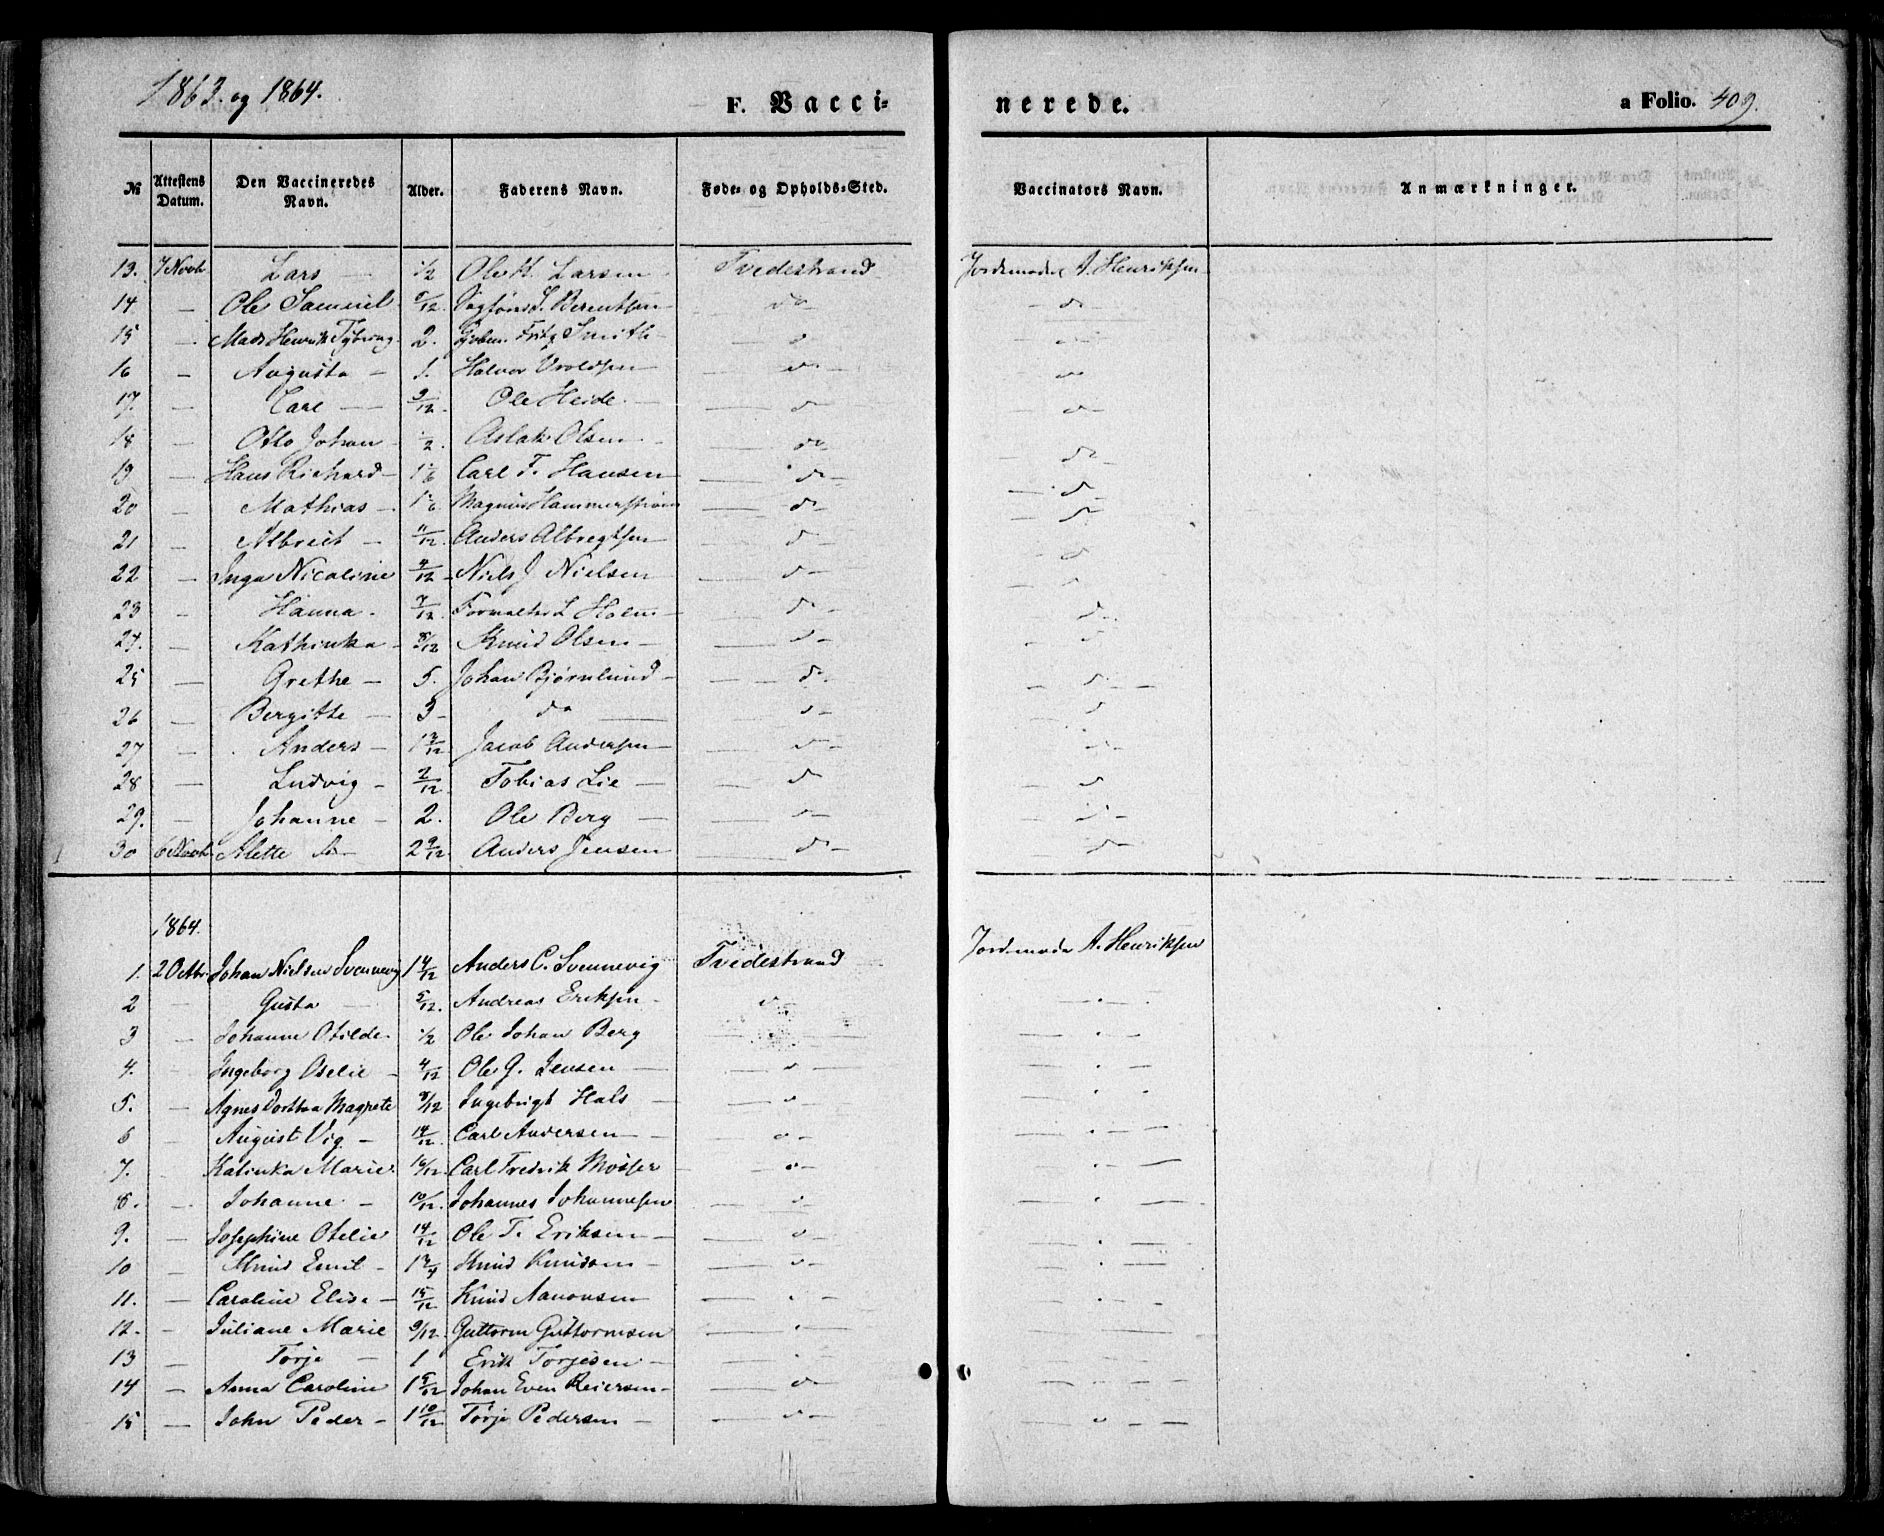 1863. og 1864.
F. Vacci- nerede. a Folio. 409.
№ Attestens Datum. Den Vaccineredes Navn. Alder. Faderens Navn. Føde- og Opholds-Sted. Vaccinators Navn. Anmærkninger.
13. 7 Novb. Lars — 1/2 Ole H. Larsen Tvedestrand Jordemoder A. Henriksen
14 — Ole Samuel 5/12 S. Berentsen — do — do
15 — Mads Henrik 2. Fritz Smith — do — do
16 — Augusta — 1. Halvor Vroldsen — do — do
17. — Carl — 9/12. Ole Heide. — do — do
18 — Otto Johan 1/2 Aslak Olsen — do — do
19 — Hans Richard 1 1/6 Carl F. Hansen — do — do
20 — Mathias — 1 1/6 Magnus Hammerstrøm — do — do
21 — Albreit — 11/12 Anders Albregtsen — do — do
22 — Inga Nicoline 4/12 Niels J. Nielsen — do — do
23 — Hanna. 7/12 L Holm — do — do
24. — Kathinka 8/12 Knud Olsen — do — do
25 — Grethe — 5. Johan Bjørnlund — do — do
26 — Bergitte — 3 do — do — do
27 — Anders — 1 3/12 Jacob Andersen — do — do
28 — Ludvig — 2/12 Tobias Lie — do — do
29. — Johanne — 2. Ole Berg — do — do
30 6 Novb. Alette 2 9/12 Anders Jensen — do — do
1864.
1. 2 Octbr. Johan Nielsen Svennevig 14/12 Anders C. Svennevig Tvedestrand Jordemoder A. Henriksen
2 — Gusta — 5/12. Andreas Eriksen — do —
3 — Johanne Otilde 1/2 Ole Johan Berg —
4. — Ingeborg Oselie — 4/12 Ole G. Jensen — do —
5. — Agnes Dorthea Magrete 8/12 Ingebrigt Hals — do —
6 — August Vig — 14/12 Carl Andersen — do —
7. — Kalinka Marie 16/12 Carl Fredrik — do —
8. — Johanne — 10/12. Johannes Johannesen — do —
9. — Josephine Otelie 14/12 Ole T. Eriksen — do —
10 — Knud Emil — 1 3/4 Knud Knudsen — do —
11. — Caroline Elise — 15/12 Knud Aanonsen —
12. — Juliane Marie 9/12 Guttorm Guttormsen —
13 — Torje — 1 Erik Torjesen —
14 — Anna Caroline 1 5/12 Johan Even Reiersen — do —
15 — John Peder — 1 10/12 Torje Pedersen — do —